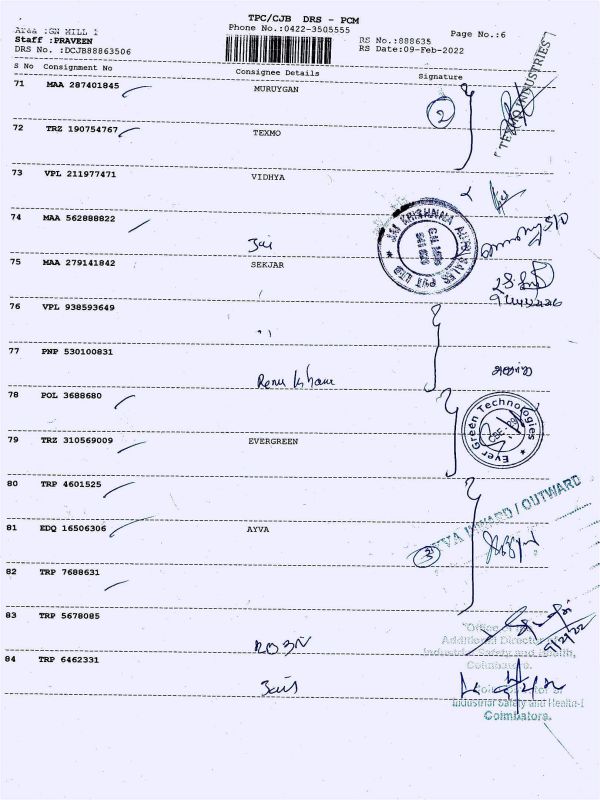 TPC/CJB DRS - PCM
Area :GN MILL 1
Phone No.:0422-3505555
Page No.:6
Staff :PRAVEEN
RS No.:888635
DRS No. :DCJB88863506
RS Date:09-Feb-2022
S No Consignment No Consignee Details Signature
71 MAA 287401845 MURUYGAN
TEXMO INDUSTRIES
2
72 TRZ 190754767 TEXMO
73 VPL 211977471 VIDHYA
74 MAA 562888822 Jai
JAI KRISHNAA AUTO SALES PVT LTD
75 MAA 279141842 SEKJAR
76 VPL 938593649 "
77 PNP 530100831 Renu
78 POL 3688680
Ever Green Technologies
79 TRZ 310569009 EVERGREEN
80 TRP 4601525
AYVA INWARD / OUTWARD
81 EDQ 16506306 AYVA
3
82 TRP 7688631
83 TRP 5678085
9/2/22
Additional Director of
Industrial Safety and Health,
Coimbatore.
84 TRP 6462331
Joint Director of
Industrial Safety and Health-I
Coimbatore.